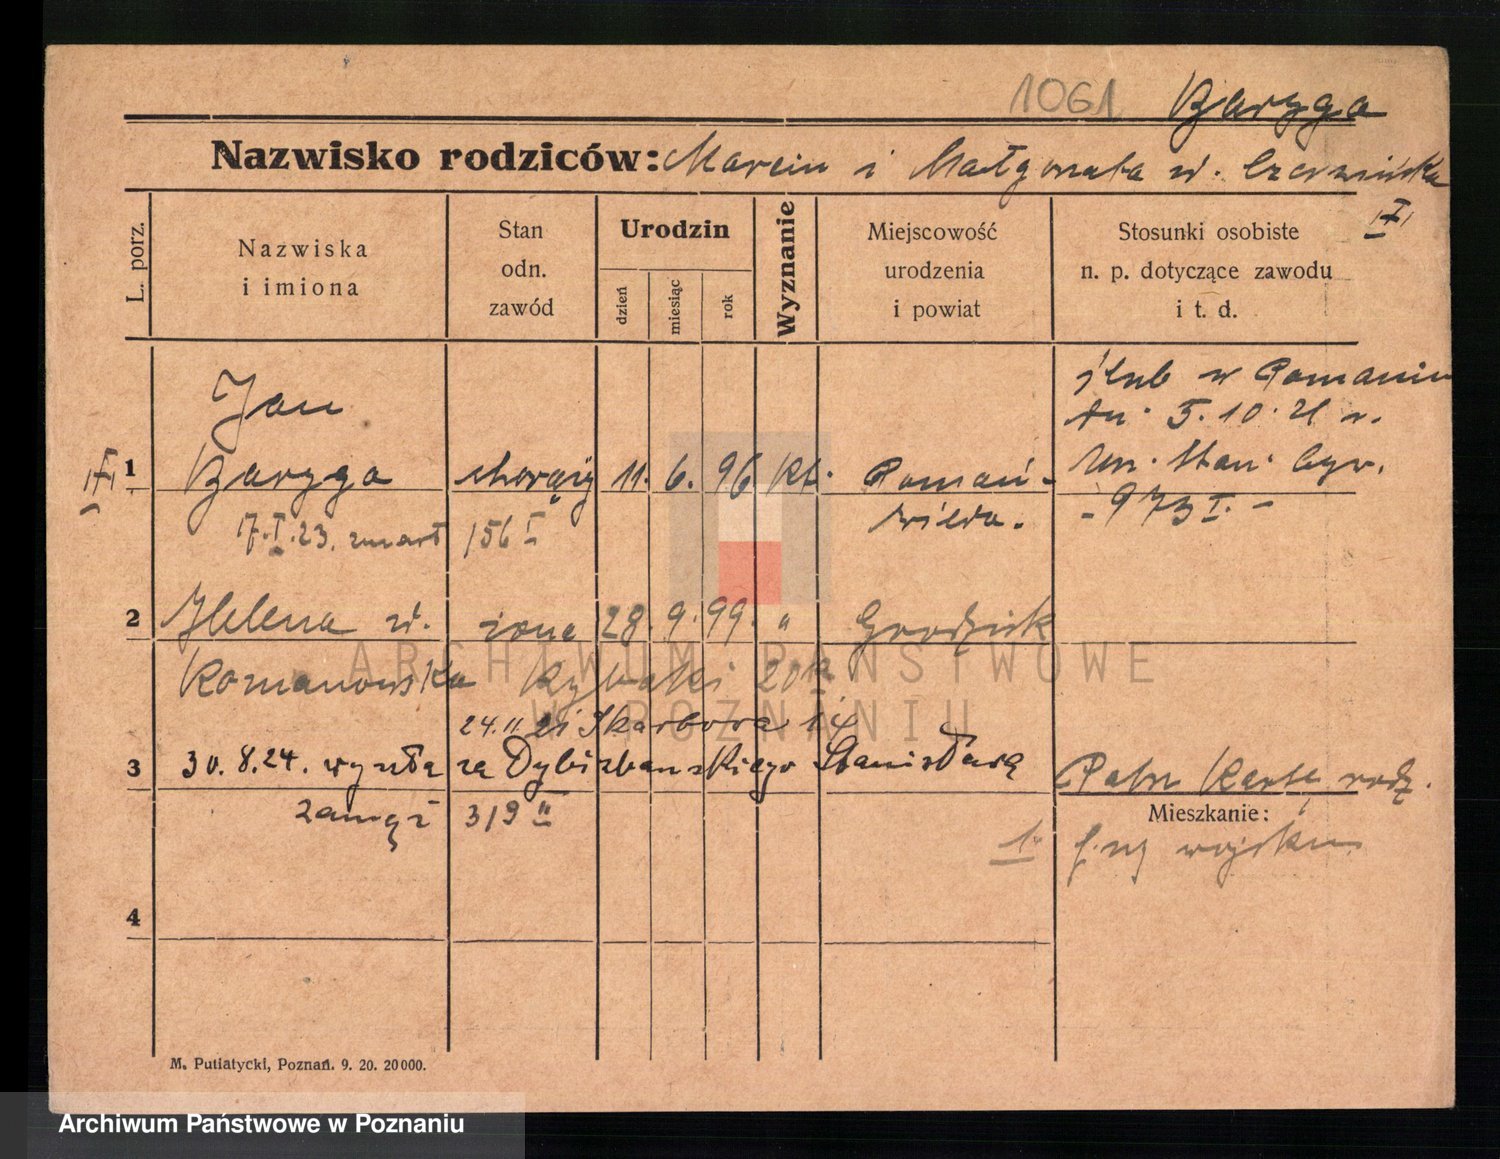 1061 Baryga
Nazwisko rodziców: Marcin i Małgorzata ur. Czerwińska
L. porz.
Nazwiska i imiona
Stan odn. zawód
Urodzin
dzień
miesiąc
rok
Wyznanie
Miejscowość urodzenia i powiat
Stosunki osobiste n. p. dotyczące zawodu i t. d.
Jan
1 Baryga chorąży 11. 6. 96 kt. Poznań -
Wilda.
17.I.23. zmarł 156 I
ślub w Poznaniu
dn. 5.10.21 r.
Urz. Stan. Cyw.
- 973 I. -
2 Helena ur. żona 28. 9. 99. " Grodzisk
Romanowska Rybaki 20
24.11.21 Skarbowa
3 30.8.24. wyszła za Dybizbańskiego Stanisława
zamąż 319 II
Patrz Kartę rodz.
Mieszkanie:
1. wojsku
4
M. Putiatycki, Poznań. 9. 20. 20000.
ARCHIWUM PAŃSTWOWE
W POZNANIU
Archiwum Państwowe w Poznaniu